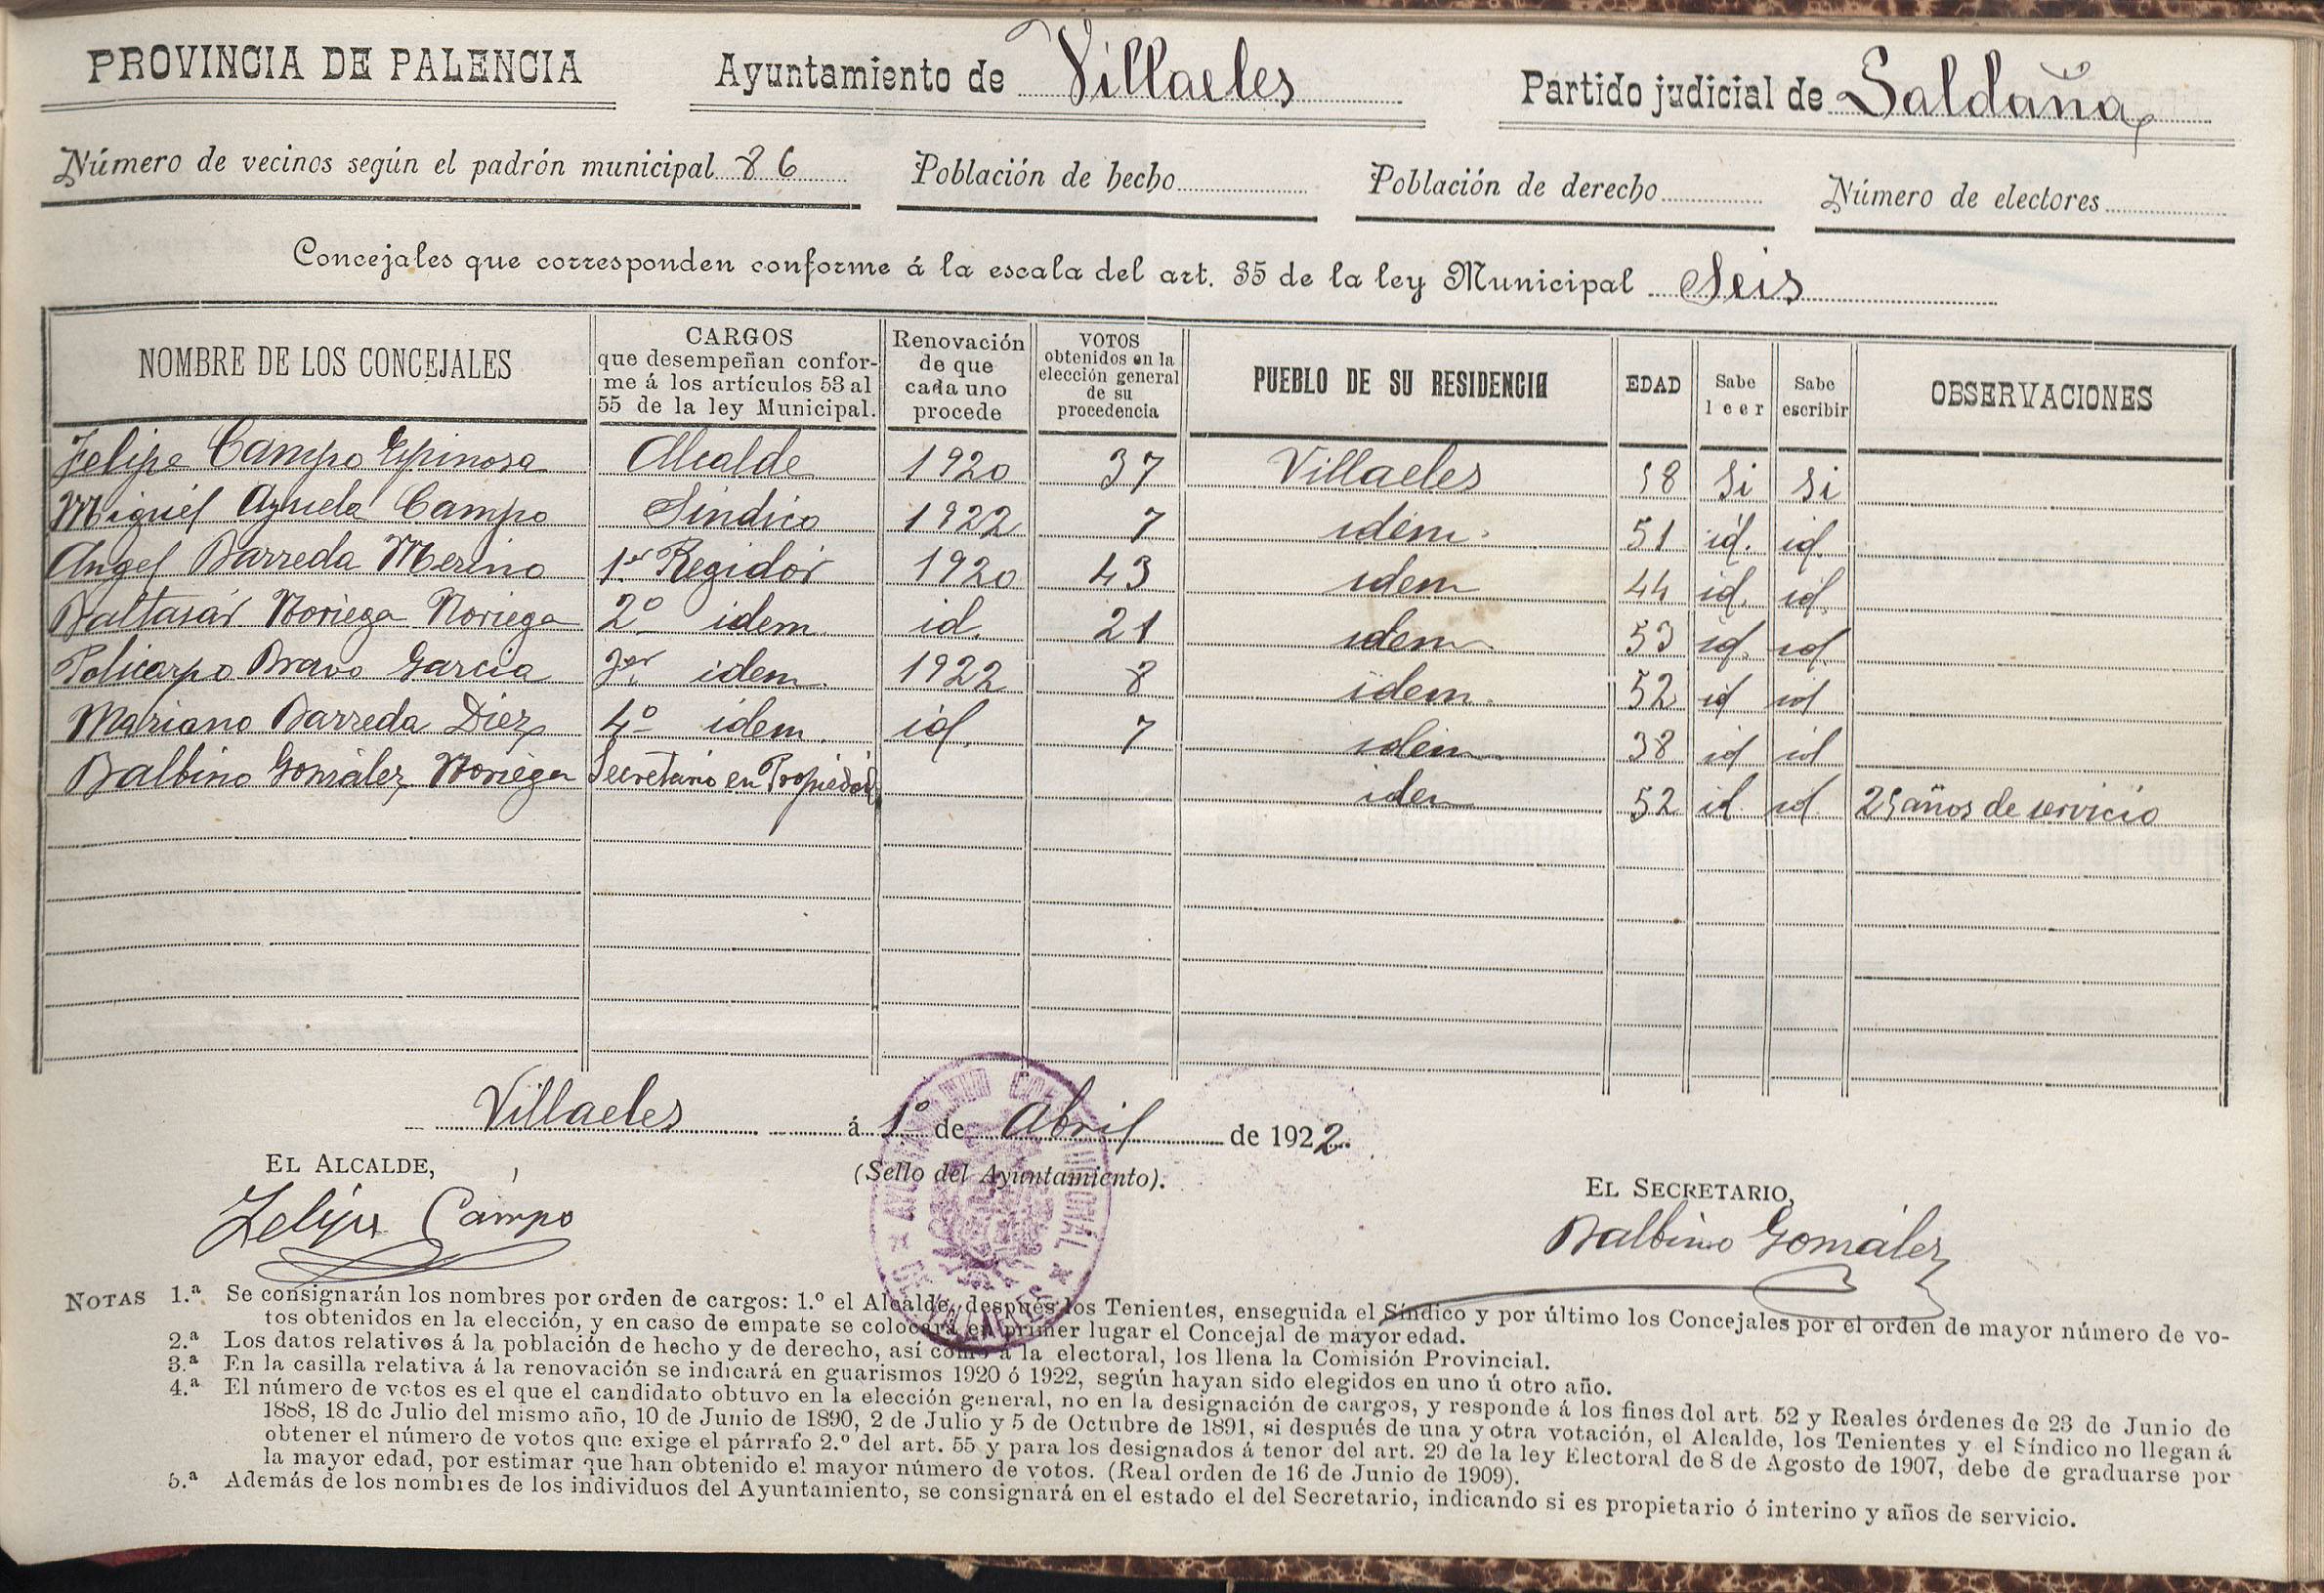 PROVINCIA DE PALENCIA Ayuntamiento de Villaeles Partido judicial de Saldaña
Número de vecinos según el padrón municipal 86 Población de hecho Población de derecho Número de electores
Concejales que corresponden conforme á la escala del art. 35 de la ley Municipal Seis
NOMBRE DE LOS CONCEJALES
CARGOS
que desempeñan confor-
me á los artículos 53 al
55 de la ley Municipal.
Renovación
de que
cada uno
procede
VOTOS
obtenidos en la
elección general
de su
procedencia
PUEBLO DE SU RESIDENCIA
EDAD
Sabe
leer
Sabe
escribir
OBSERVACIONES
Felipe Campo Espinosa Alcalde 1920 37 Villaeles 58 Si Si
Miguel Azuela Campo Síndico 1922 7 idem. 51 id. id.
Angel Barreda Merino 1er Regidor 1920 43 idem 44 id. id.
Baltasár Noriega Noriega 2º idem. id. 21 idem. 53 id. id.
Policarpo Bravo Garcia 3er idem. 1922 8 idem. 52 id id
Mariano Barreda Diez 4º idem. id. 7 idem 38 id id
Balbino González Noriega Secretario en Propiedad idem 52 id. id. 25 años de servicio
Villaeles á 1º de Abril de 1922.
(Sello del Ayuntamiento).
EL ALCALDE,
Felipe Campo
EL SECRETARIO,
Balbino González
NOTAS 1.ª Se consignarán los nombres por orden de cargos: 1.º el Alcalde, después los Tenientes, enseguida el Síndico y por último los Concejales por el orden de mayor número de vo-
tos obtenidos en la elección, y en caso de empate se colocará en primer lugar el Concejal de mayor edad.
2.ª Los datos relativos á la población de hecho y de derecho, así como á la electoral, los llena la Comisión Provincial.
3.ª En la casilla relativa á la renovación se indicará en guarismos 1920 ó 1922, según hayan sido elegidos en uno ú otro año.
4.ª El número de votos es el que el candidato obtuvo en la elección general, no en la designación de cargos, y responde á los fines del art. 52 y Reales órdenes de 23 de Junio de
1888, 18 de Julio del mismo año, 10 de Junio de 1890, 2 de Julio y 5 de Octubre de 1891, si después de una y otra votación, el Alcalde, los Tenientes y el Síndico no llegan á
obtener el número de votos que exige el párrafo 2.º del art. 55 y para los designados á tenor del art. 29 de la ley Electoral de 8 de Agosto de 1907, debe de graduarse por
la mayor edad, por estimar que han obtenido el mayor número de votos. (Real orden de 16 de Junio de 1909).
5.ª Además de los nombres de los individuos del Ayuntamiento, se consignará en el estado el del Secretario, indicando si es propietario ó interino y años de servicio.